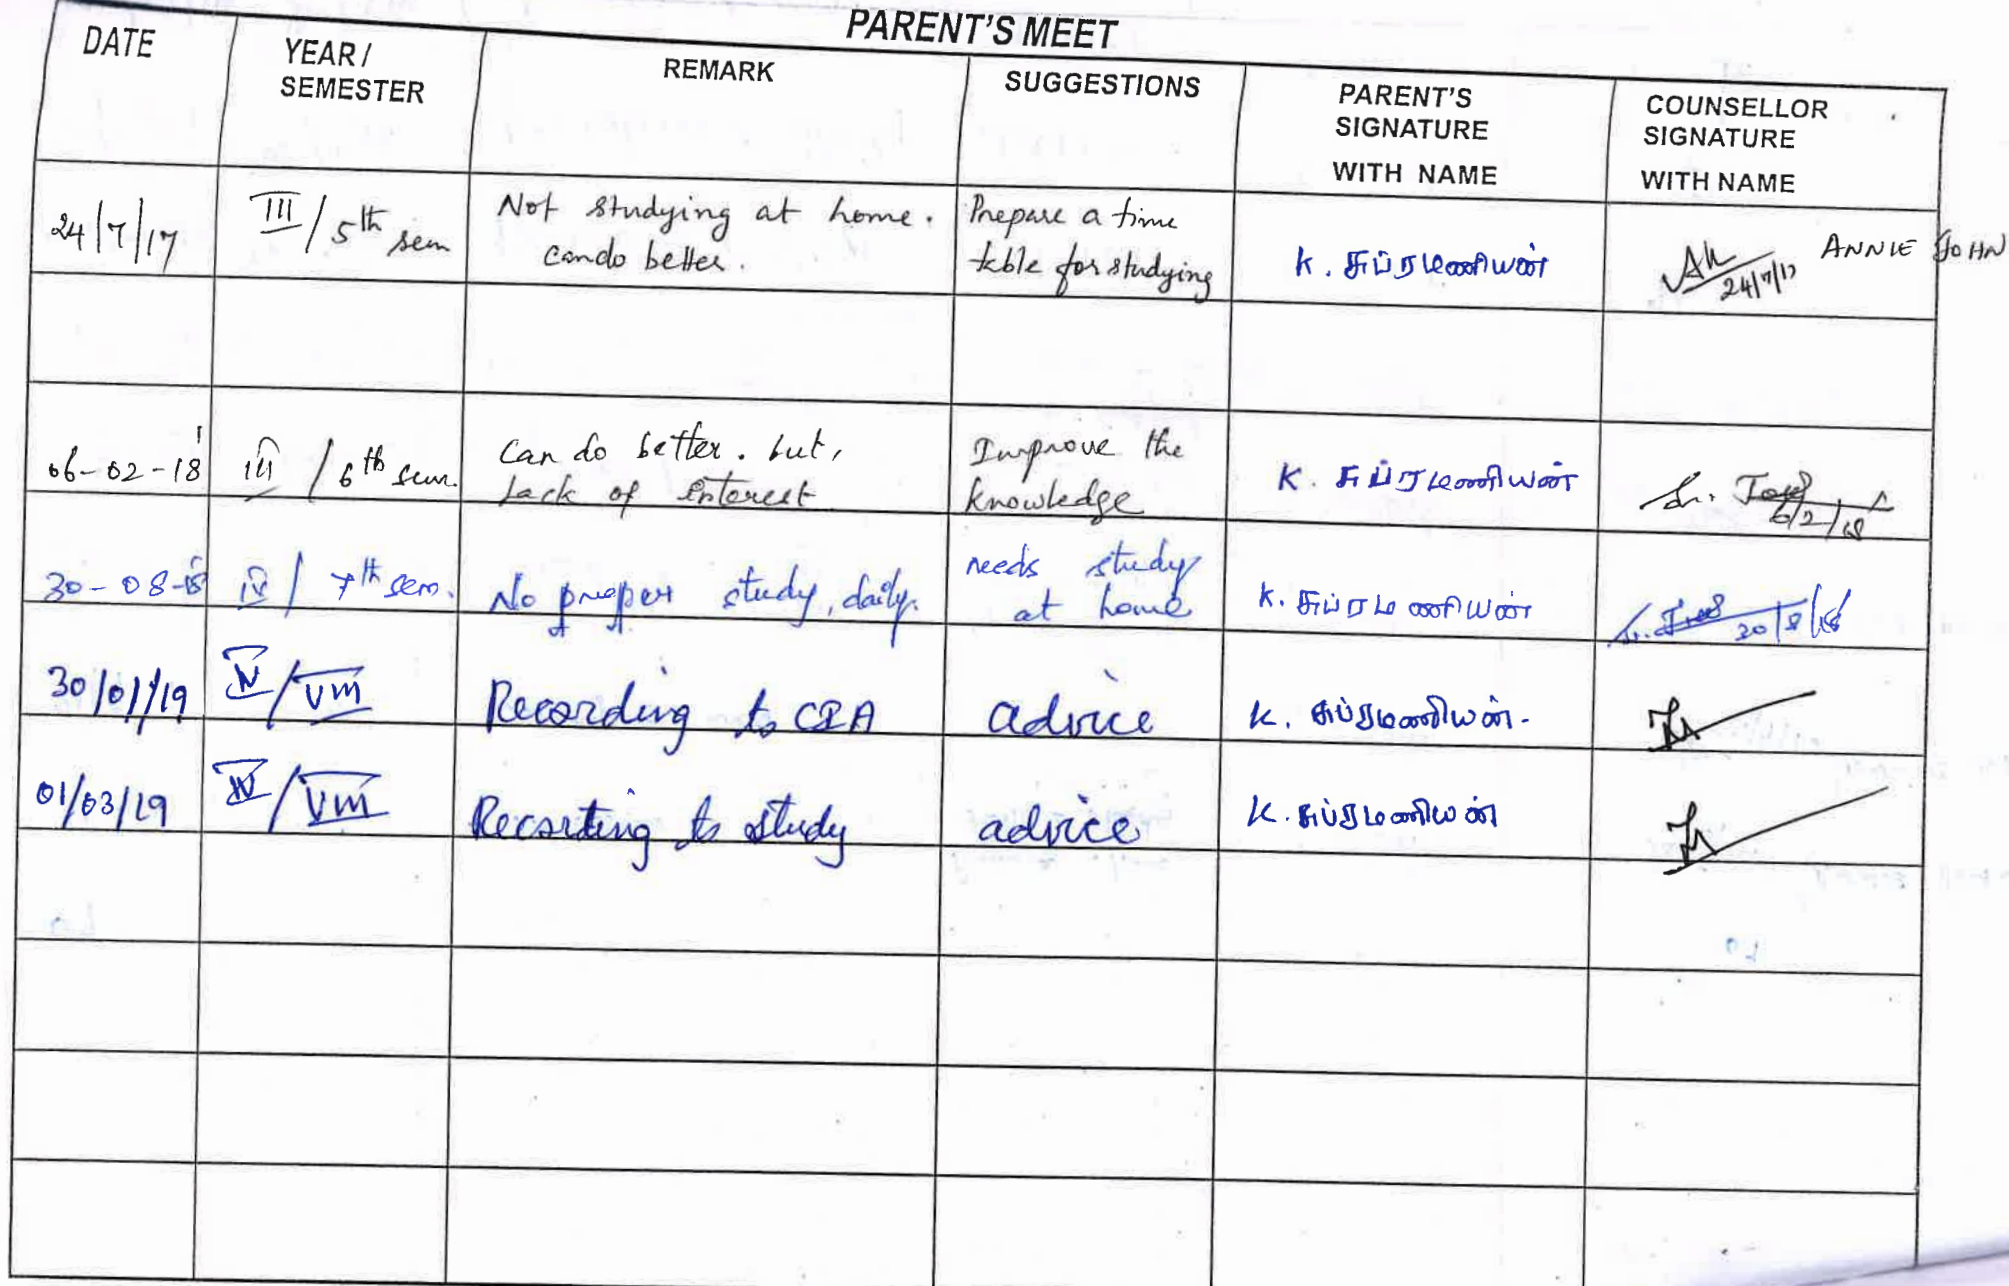 PARENT'S MEET
DATE
YEAR /
SEMESTER
REMARK
SUGGESTIONS
PARENT'S
SIGNATURE
WITH NAME
COUNSELLOR
SIGNATURE
WITH NAME
24/7/17
III / 5th sem
Not studying at home.
can do better.
Prepare a time
table for studying
K. சுப்ரமணியன்
24/7/17
ANNIE JOHN
06-02-18
III / 6th sem.
Can do better. but,
lack of interest
Improve the
knowledge
K. சுப்ரமணியன்
6/2/18
30-08-18
IV / 7th sem.
No proper study, daily.
needs study
at home
K. சுப்ரமணியன்
30/8/18
30/01/19
IV / VIII
Recording to CIA
advice
K. சுப்ரமணியன்.
01/03/19
IV / VIII
Recording to study
advice
K. சுப்ரமணியன்